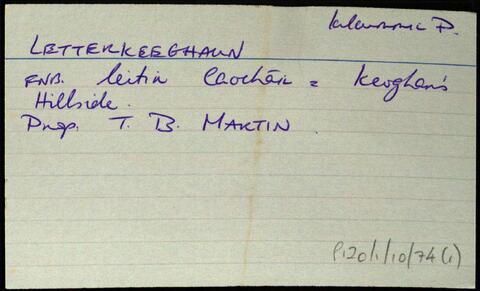 P.
LETTERKEEGHAUN
FNB. leitir Caocháin = Keoghan's
Hillside.
Prop. T. B. MARTIN.
P120/1/10/74(i)